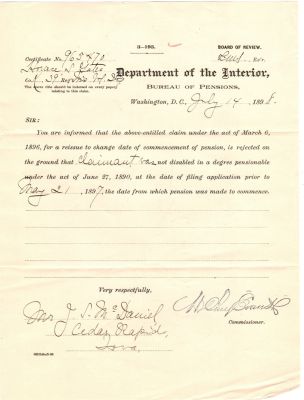 3—193.
BOARD OF REVIEW.
Certificate No.
Rev.
The above title should be indorsed on every paper
relating to this claim.
Department of the Interior,
BUREAU OF PENSIONS,
Washington, D. C., July 14, 1898.
SIR:
You are informed that the above-entitled claim under the act of March 6,
1896, for a reissue to change date of commencement of pension, is rejected on
the ground that claimant was not disabled in a degree pensionable
under the act of June 27, 1890, at the date of filing application prior to
May 21, 1897, the date from which pension was made to commence.
Very respectfully,
Commissioner.
Mr J. S. McDaniel
Cedar Rapids,
Iowa.